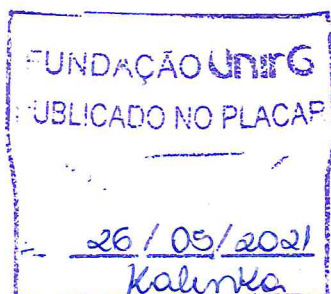 FUNDAÇÃO UnirG
PUBLICADO NO PLACAR
26 / 05 / 2021
Kalinka